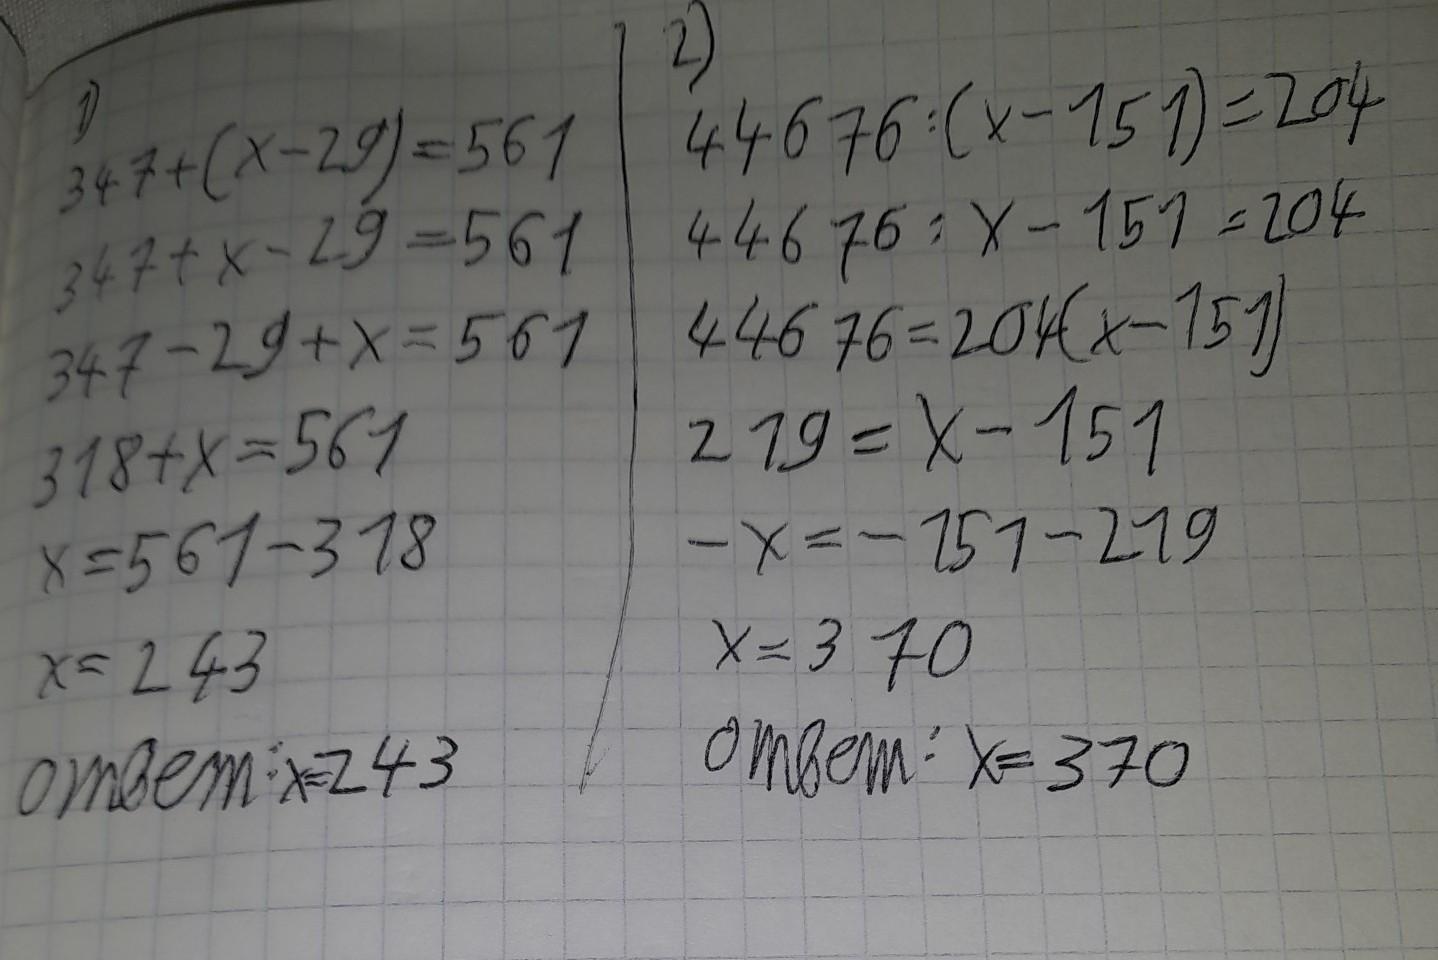 1)
347+(x-29)=561
347+x-29=561
347-29+x=561
318+x=561
x=561-318
x=243
ответ: x=243
2)
44676:(x-151)=204
44676:x-151=204
44676=204(x-151)
219=x-151
-x=-151-219
x=370
ответ: x=370